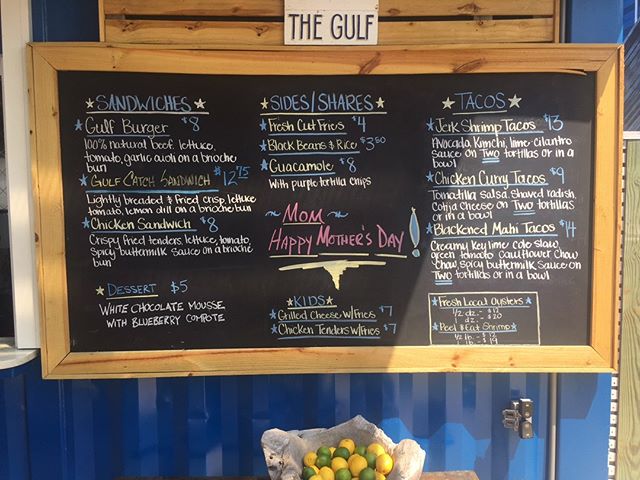 THE GULF
SANDWICHES
Gulf Burger $8
100% natural beef. lettuce,
tomato, garlic aioli on a brioche
bun
GULF CATCH SANDWICH $12.75
Lightly breaded & fried crisp, lettuce
tomato, lemon dill on a brioche bun
Chicken Sandwich $8
Crispy fried tenders, lettuce, tomato,
Spicy buttermilk sauce on a brioche
bun
DESSERT $5
WHITE CHOCOLATE MOUSSE
WITH BLUEBERRY COMPOTE
SIDES/SHARES
Fresh Cut Fries $4
Black Beans & Rice $3.50
Guacamole $8
With purple tortilla chips
~ Mom ~
Happy Mother's Day!
KIDS
Grilled Cheese w/Fries $7
Chicken Tenders w/Fries $7
TACOS
Jerk Shrimp Tacos $13
Avocado, Kimchi, lime-cilantro
sauce on Two tortillas or in a
bowl
Chicken Curry Tacos $9
Tomatilla salsa, shaved radish,
Cotija Cheese on Two tortillas
or in a bowl
Blackened Mahi Tacos $14
Creamy key lime cole slaw,
green tomato cauliflower Chow
Chow, spicy buttermilk sauce on
Two tortillas or in a bowl
Fresh Local Oysters
1/2 dz. - $12
dz. - $20
Peel & Eat Shrimp
1/2 lb. - $12
1 lb. - $19